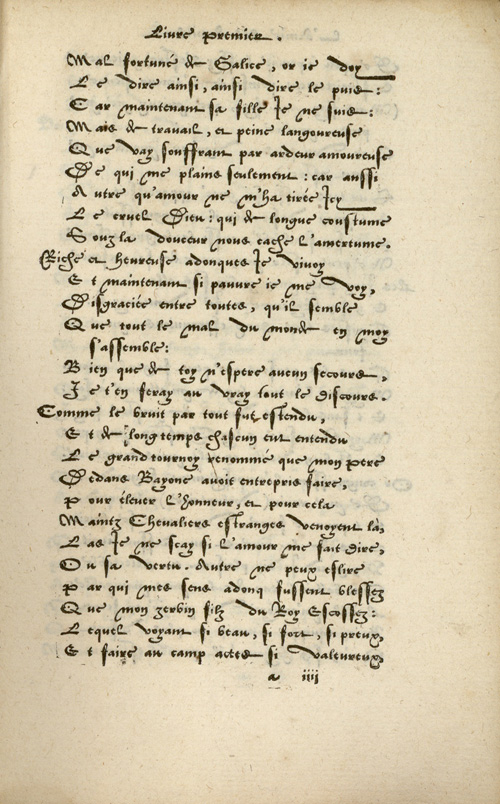 Livre premier.
Mal fortuné de Galice, or ie doy
Le dire ainsi, ainsi dire le puis:
Car maintenant sa fille Ie ne suis:
Mais de travail, et peine langoureuse
Que vay souffrant par ardeur amoureuse
De qui me plains seulement: car aussi
Autre qu'amour ne m'ha tirée Icy
Le cruel Dieu: qui de longue coustume
Souz la douceur nous cache l'amertume.
Riche et heureuse adonques Ie vivoy
Et maintenant si pauvre ie me voy,
Disgraciée entre toutes, qu'il semble
Que tout le mal du monde en moy
s'assemble:
Bien que de toy n'espere aucun secours,
Ie t'en feray au vray tout le discours.
Comme le bruit par tout fut estendu,
Et de long temps chascun eut entendu
Le grand tournoy renommé que mon pere
Dedans Bayone avoit entrepris faire,
Pour élever l'honneur, et pour cela
Maintz Chevaliers estranges venoyent la,
Las Ie ne scay si l'amour me fait dire,
Ou sa vertu. Autre ne peux eslire
Par qui mes sens adonq fussent blessez
Que mon zerbin filz du Roy Escossez:
Lequel voyant si beau, si fort, si preux,
Et faire au camp actes si valeureux,
a iiii